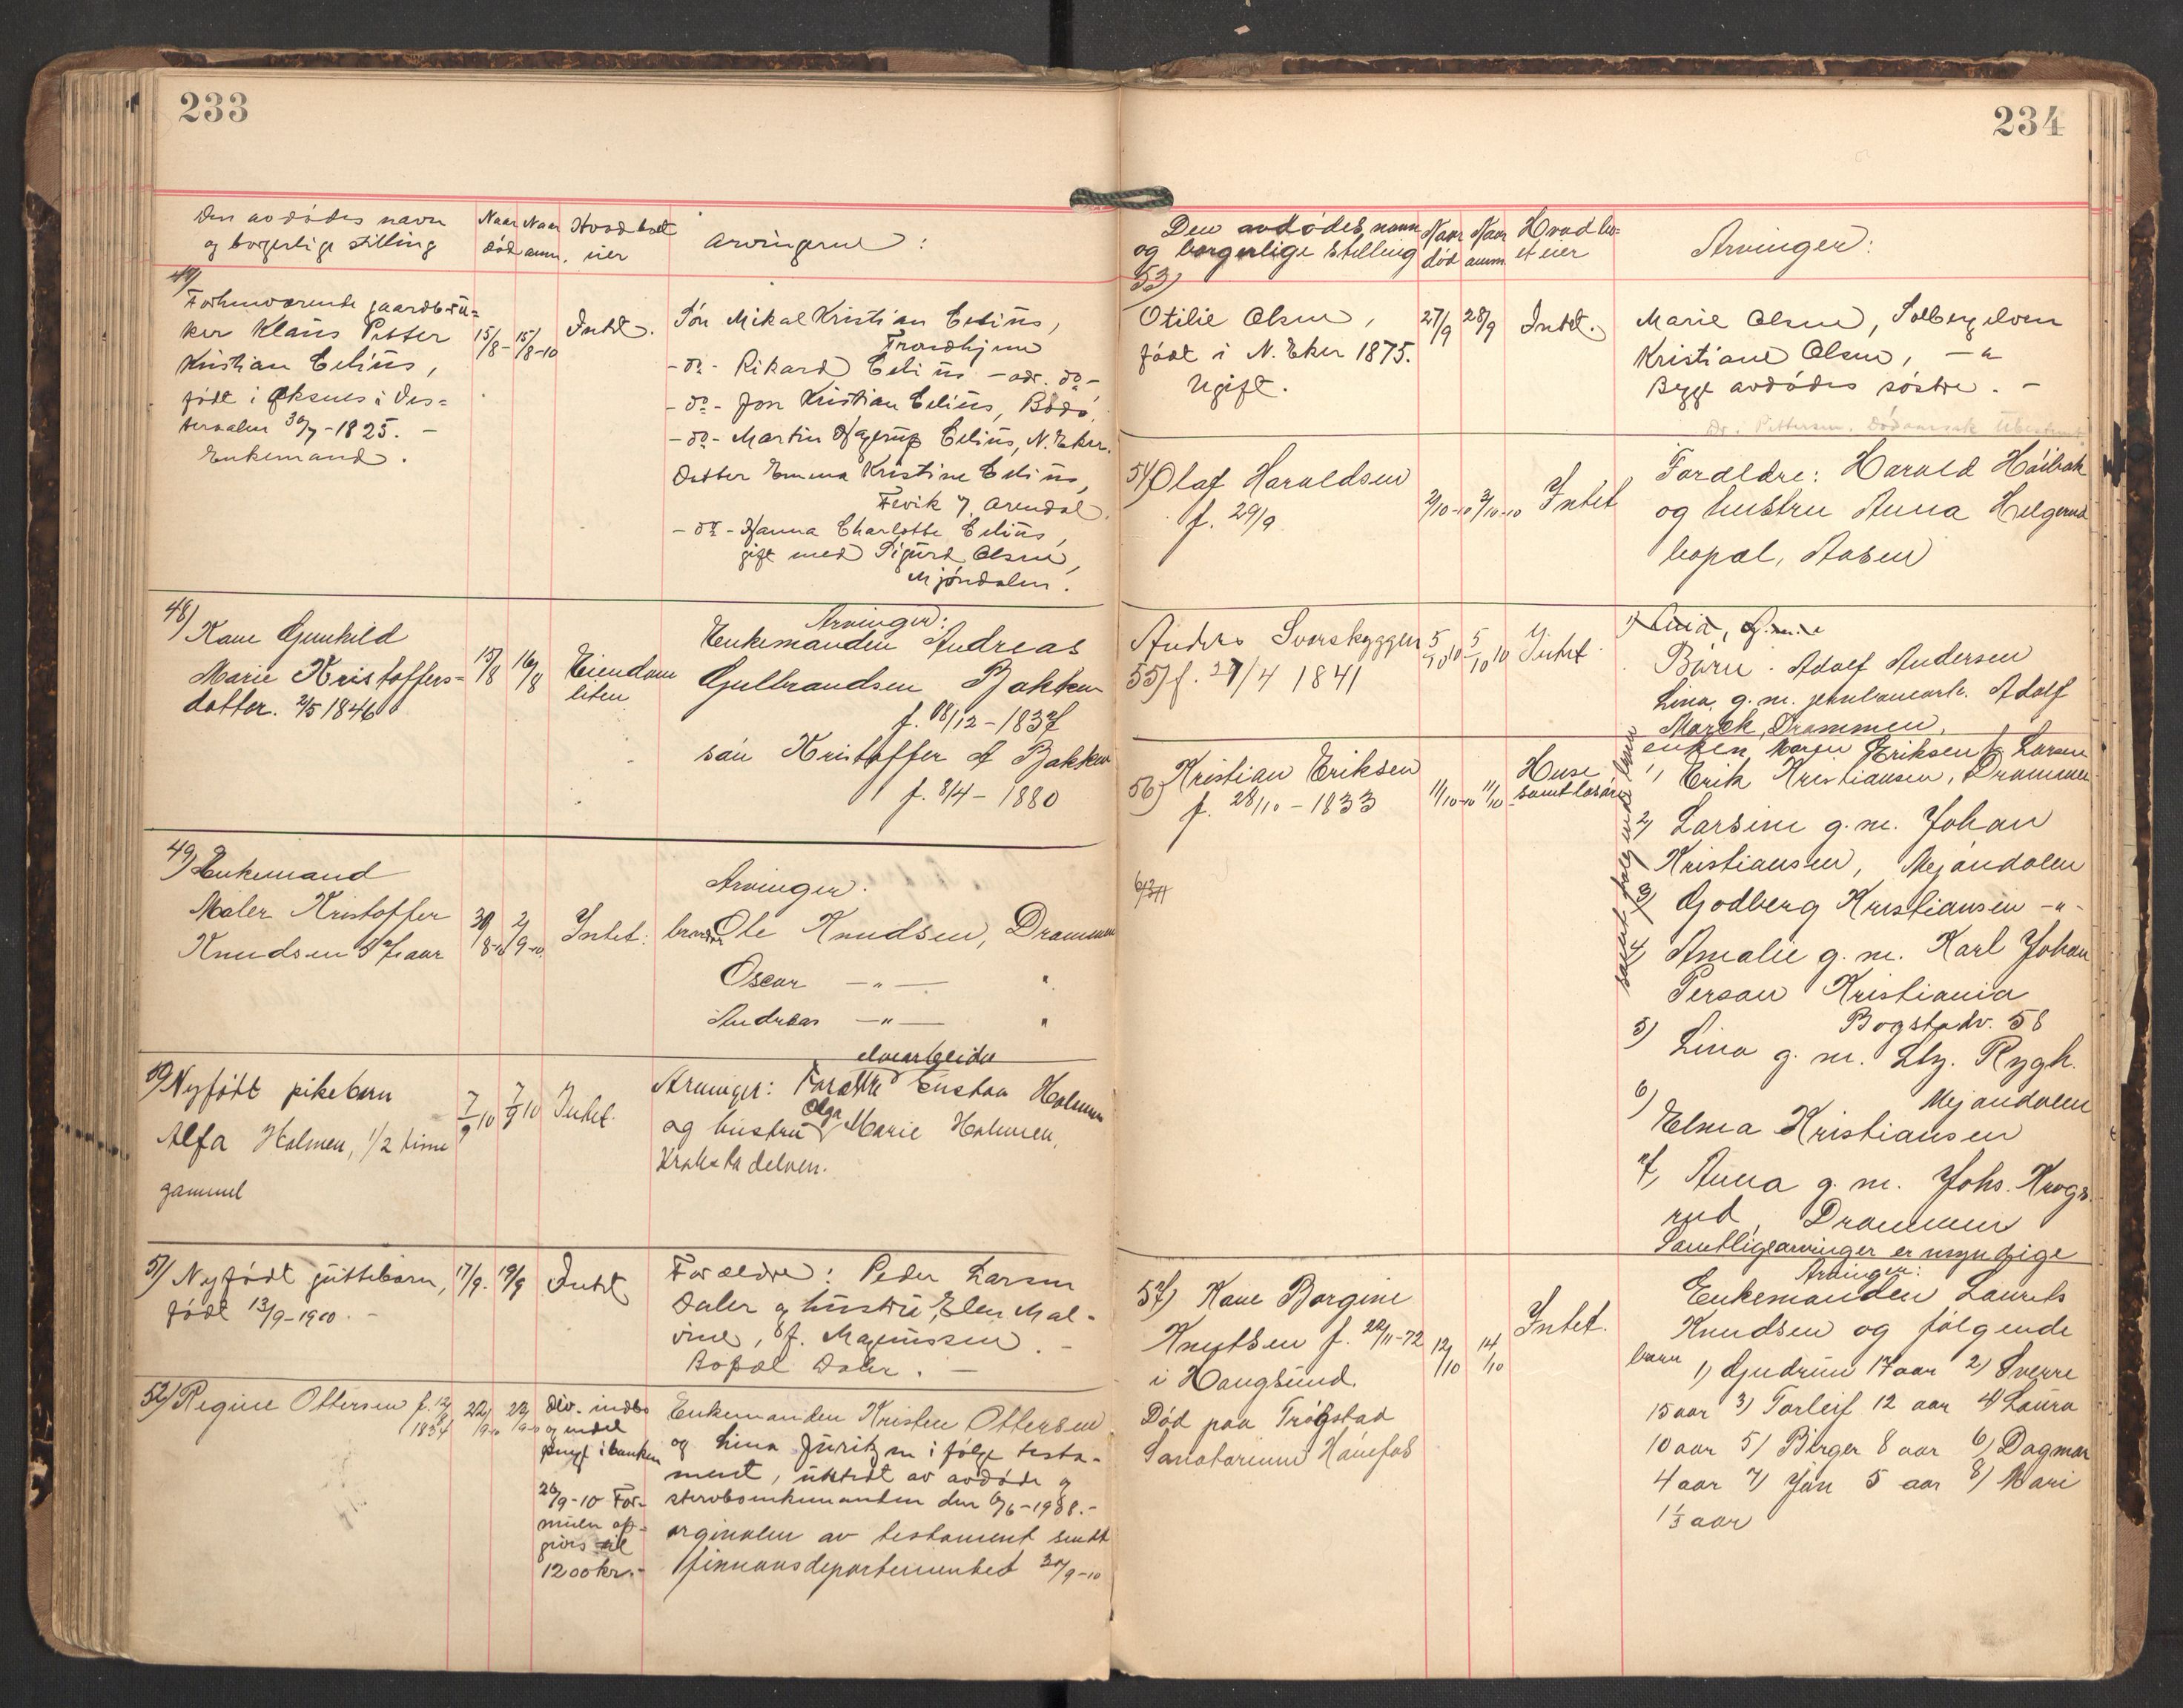 233
Den avdødes navn
og borgerlige stilling
Naar død
Naar anm.
Hvad boet eier
Arvingerne:
47)
Forhenværende gaardbru=
ker Klaus Petter
Kristian Celius,
født i Øksnes i Ves=
teraalen 30/7-1825. -
Enkemand.
15/8-
15/8-10
Intet.
Søn Mikal Kristian Celius,
Trondhjem
-do- Rikard Celius -adr. do-
-do- Jon Kristian Celius, Bodø,
-do- Martin Hagerup Celius, N. Eker.
Datter Emma Kristine Celius,
Fevik p. Arendal.
-do- Hanna Charlotte Celius,
gift med Sigurd Olsen,
Mjøndalen.
48)
Kane Gunhild
Marie Kristoffers-
datter. 2/5 1846
15/8
16/8
Eiendom
liten
Arvinger:
Enkemanden Andreas
Gulbrandsen Bakken
f. 08/12-1837
søn Kristoffer A Bakken
f. 8/4 - 1880
49) Enkemand
Maler Kristoffer
Knudsen 57 aar
30/8-10
2/9-10
Intet.
Arvinger.
brødre Ole Knudsen, Drammen
Oscar -"- "
Andreas -"- "
50) Nyfødt pikebarn
Alfa Holmen, 1/2 time
gammel
7/9 10
7/9 10
Intet.
elvearbeider
Arvinger: Forældre Gustav Holmen
og hustru Olga Marie Holmen,
Krokstadelven.
51) Nyfødt guttebarn,
født 13/9-1910. -
17/9.
19/9
Intet
Forældre: Peder Larsen
Daler og hustru, Elen Mal-
vine, f. Magnussen. -
Bopæl Daler. -
52) Regine Ottersen f. 12/8
1834
22/9-10
23/9-10
Div. indbo
og endel
penge i banken
26/9-10 For-
muen op-
gives til
1200 kr. -
Enkemanden Kristen Ottersen
og Lina Juritzen i følge testa-
ment, utstedt av avdøde og
stervboenkemanden den 6/6-1908. -
orginalen av testament sendt
finnansdepartementet 30/9-10
234
Den avdødes navn
og borgerlige stilling
Naar død
Naar anm
Hvad bo-
et eier
Arvinger:
53)
Otilie Olsen,
født i N. Eker 1875.
Ugift.
27/9
28/9
Intet.
Marie Olsen, Solbergelven
Kristiane Olsen, -"
Begge avdødes søstre. -
Dr. Pettersen. Dødsaarsak Ubestemt.
54) Olaf Haraldsen
f. 29/9
2/10-10
3/10-10
Intet
Forældre: Harald Høibak
og hustru Anna Helgerud
bopæl, Aasen
Anders Svorskyggen
55) f. 27/4 1841
5/10 10
5/10 10
Intet
1)
Børn. Adolf Andersen
Lina g. m. jernbanearb. Adolf
Marck, Drammen.
56) Kristian Eriksen
f. 28/10 - 1833
11/10-10
11/10
Huse
samt løsøre
enken, Maren Eriksen f. Larsen
1) Erik Kristiansen, Drammen
2) Larsine g. m. Johan
Kristiansen, Mjøndalen
3) Godberg Kristiansen -"-
4) Amalie g. m. Karl Johan
Person Kristiania
Bogstadv. 58
5) Lina g. m. Rygh.
Mjøndalen
6) Elma Kristiansen
7) Anna g. m. Johs. Krogs-
rud, Drammen
Samtlige arvinger er myndige
57) Kane Borgine
Knutsen f. 20/11-72
i Haugsund.
Død paa Trøgstad
Sanatorium Hønefos
12/10
14/10
Intet.
Arvinger:
Enkemanden Laurits
Knudsen og følgende
barn 1) Gudrun 17 aar 2) Sverre
15 aar 3) Torleif 12 aar 4) Laura
10 aar 5) Birger 8 aar 6) Dagmar
4 aar 7) Jan 5 aar 8) Mari
1 1/3 aar